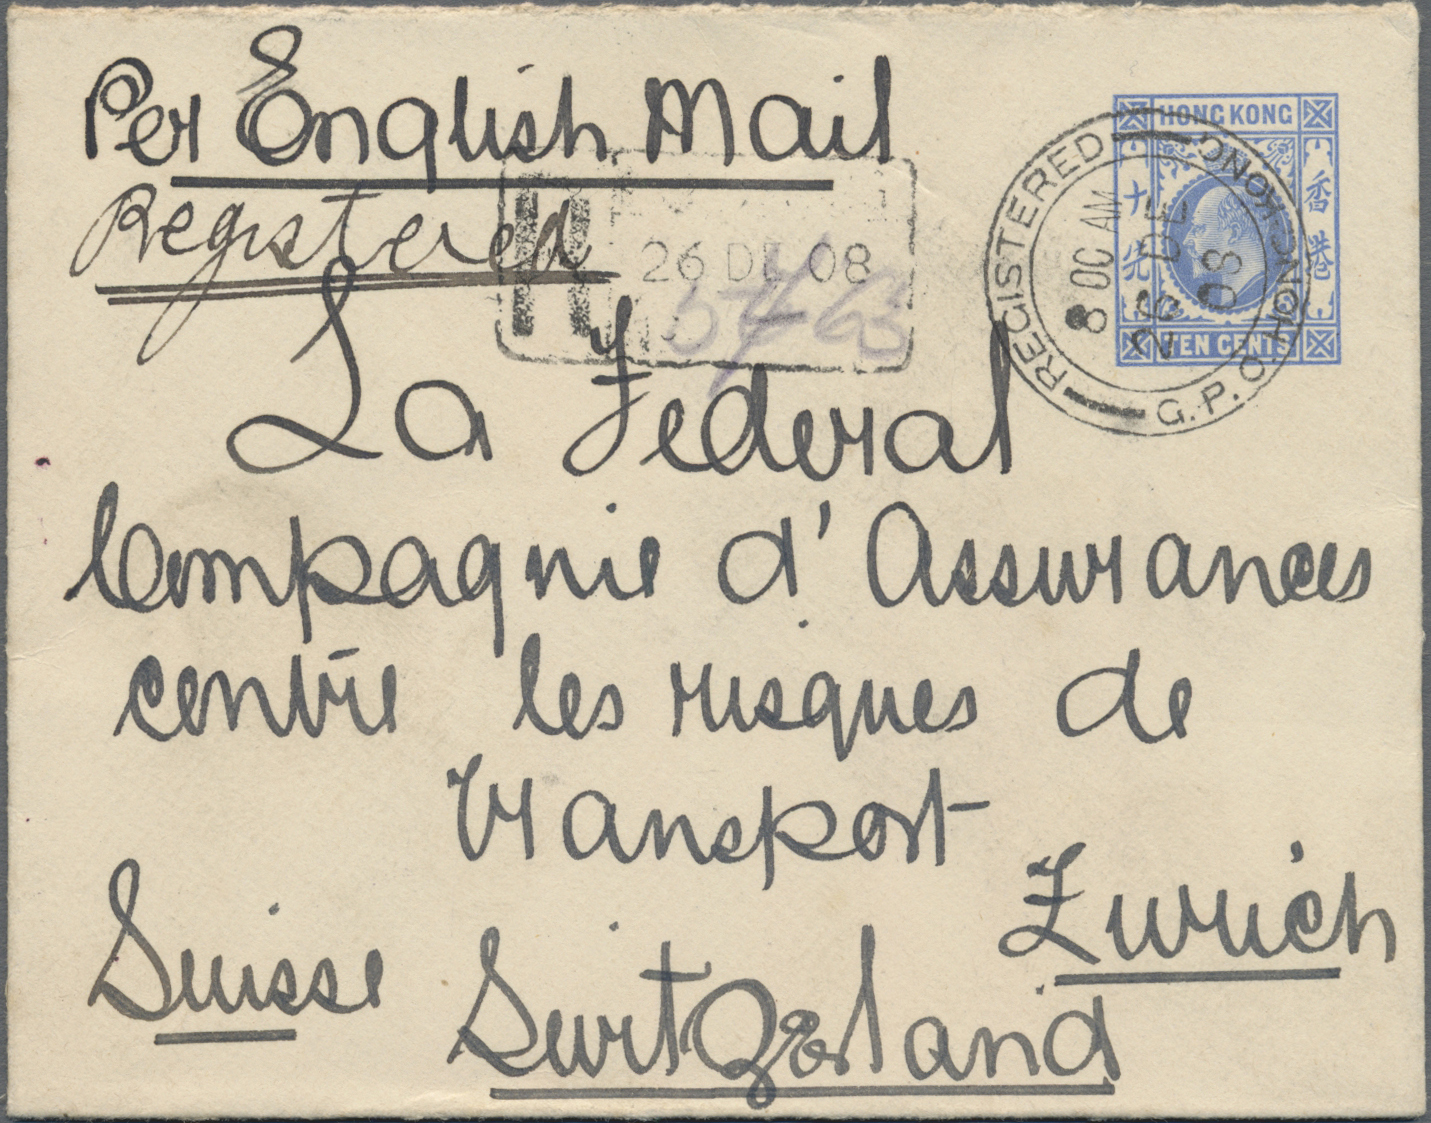 Per English Mail
Registered
R
26 DE 08
HONG KONG
香港
TEN CENTS
REGISTERED
G.P.O. HONG KONG
8 OC AM
26 DE
08
La Federal
Compagnie d'Assurances
contre les risques de
transport
Zurich
Suisse
Switzerland